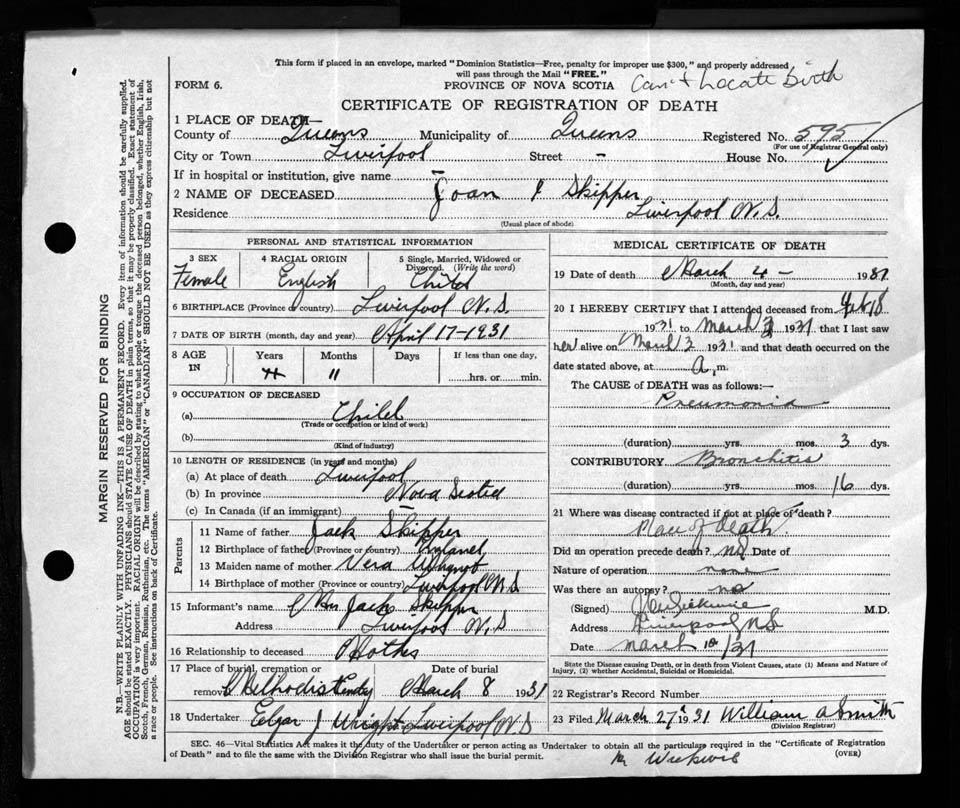 This form if placed in an envelope, marked "Dominion Statistics—Free, penalty for improper use $300," and properly addressed
will pass through the Mail "FREE."
FORM 6. PROVINCE OF NOVA SCOTIA Can't Locate Birth
CERTIFICATE OF REGISTRATION OF DEATH
1 PLACE OF DEATH—
County of Queens Municipality of Queens Registered No. 595
(For use of Registrar General only)
City or Town Liverpool Street - House No.
If in hospital or institution, give name -
2 NAME OF DECEASED Joan Skipper
Residence Liverpool N.S.
(Usual place of abode)
PERSONAL AND STATISTICAL INFORMATION
3 SEX 4 RACIAL ORIGIN 5 Single, Married, Widowed or
Divorced. (Write the word)
Female English Child
6 BIRTHPLACE (Province or country) Liverpool N.S.
7 DATE OF BIRTH (month, day and year) April 17-1931
8 AGE IN Years Months Days If less than one day,
11 hrs. or min.
9 OCCUPATION OF DECEASED
(a) Child
(Trade or occupation or kind of work)
(b)
(Kind of industry)
10 LENGTH OF RESIDENCE (in years and months)
(a) At place of death Liverpool
(b) In province Nova Scotia
(c) In Canada (if an immigrant) -
Parents
11 Name of father Jack Skipper
12 Birthplace of father (Province or country)
13 Maiden name of mother Vera
14 Birthplace of mother (Province or country) Liverpool N.S
15 Informant's name Mrs Jack Skipper
Address Liverpool N.S
16 Relationship to deceased Mother
17 Place of burial, cremation or Date of burial
removal Methodist March 8 1931
18 Undertaker J Wright Liverpool N.S
MEDICAL CERTIFICATE OF DEATH
19 Date of death March 4 - 1931
(Month, day and year)
20 I HEREBY CERTIFY that I attended deceased from Feb 18
1931 to March 3 1931 that I last saw
her alive on March 3 1931 and that death occurred on the
date stated above, at a, m.
The CAUSE of DEATH was as follows:—
Pneumonia
(duration) yrs. mos. 3 dys.
CONTRIBUTORY Bronchitis
(duration) yrs. mos. 16 dys.
21 Where was disease contracted if not at place of death?
Place of death.
Did an operation precede death? no Date of
Nature of operation none
Was there an autopsy? no
(Signed) M.D.
Address Liverpool N.S
Date March /31
State the Disease causing Death, or in death from Violent Causes, state (1) Means and Nature of
Injury, (2) whether Accidental, Suicidal or Homicidal.
22 Registrar's Record Number
23 Filed March 27 1931 William A Smith
(Division Registrar)
SEC. 46—Vital Statistics Act makes it the duty of the Undertaker or person acting as Undertaker to obtain all the particulars required in the "Certificate of Registration
of Death" and to file the same with the Division Registrar who shall issue the burial permit. (OVER)
MARGIN RESERVED FOR BINDING
N.B.—WRITE PLAINLY WITH UNFADING INK—THIS IS A PERMANENT RECORD. Every item of information should be carefully supplied.
AGE should be stated EXACTLY. PHYSICIANS should STATE CAUSE OF DEATH in plain terms, so that it may be properly classified. Exact statement of
OCCUPATION is very important. RACIAL ORIGIN will be described by stating to what people or tongue the deceased person belonged, whether English, Irish,
Scotch, French, German, Russian, Ruthenian, etc. The terms "AMERICAN" or "CANADIAN" SHOULD NOT BE USED as they express citizenship but not
a race or people. See instructions on back of Certificate.